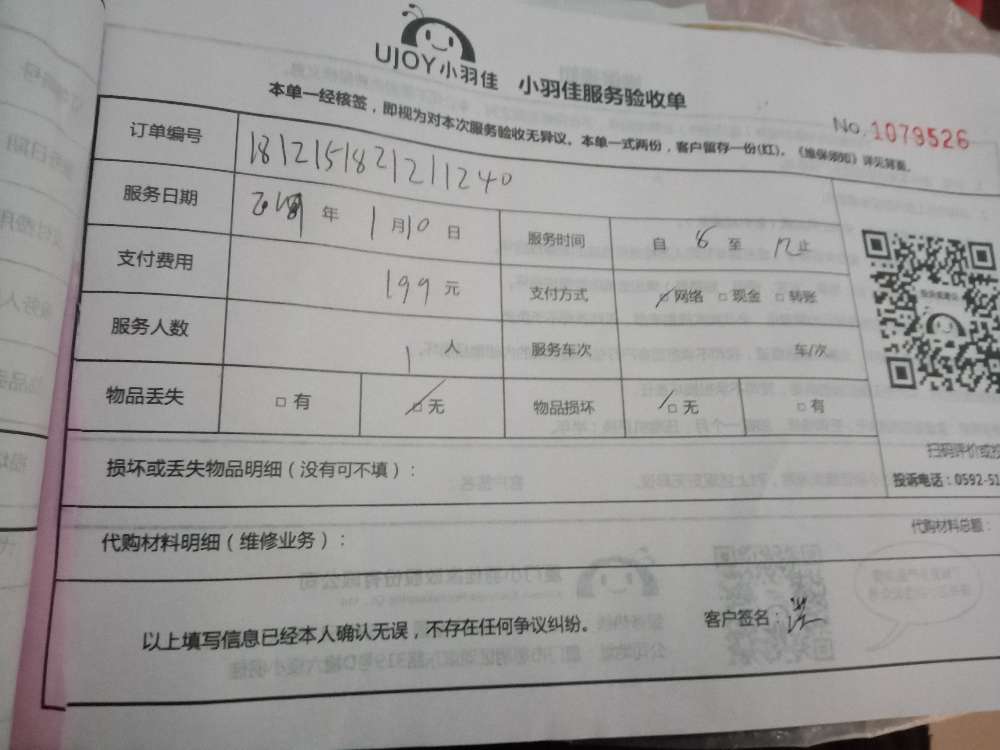 UJOY小羽佳 小羽佳服务验收单
No. 1079526
本单一经核签，即视为对本次服务验收无异议。本单一式两份，客户留存一份(红)。《维保须知》详见背面。
订单编号 181215182121240
服务日期 年 1月10日 服务时间 自 8 至 12 止
支付费用 199 元 支付方式 □网络 □现金 □转账
服务人数 1 人 服务车次 车/次
物品丢失 □有 □无 物品损坏 □无 □有
扫码评价或投
损坏或丢失物品明细（没有可不填）：
投诉电话：0592-51
代购材料明细（维修业务）：
代购材料总额：
以上填写信息已经本人确认无误，不存在任何争议纠纷。 客户签名：